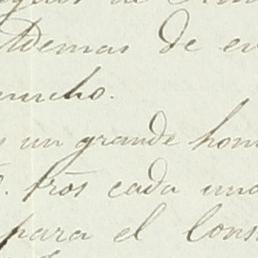 Ademas de en
mucho.
un grande hon
tros cada una
para el Cons